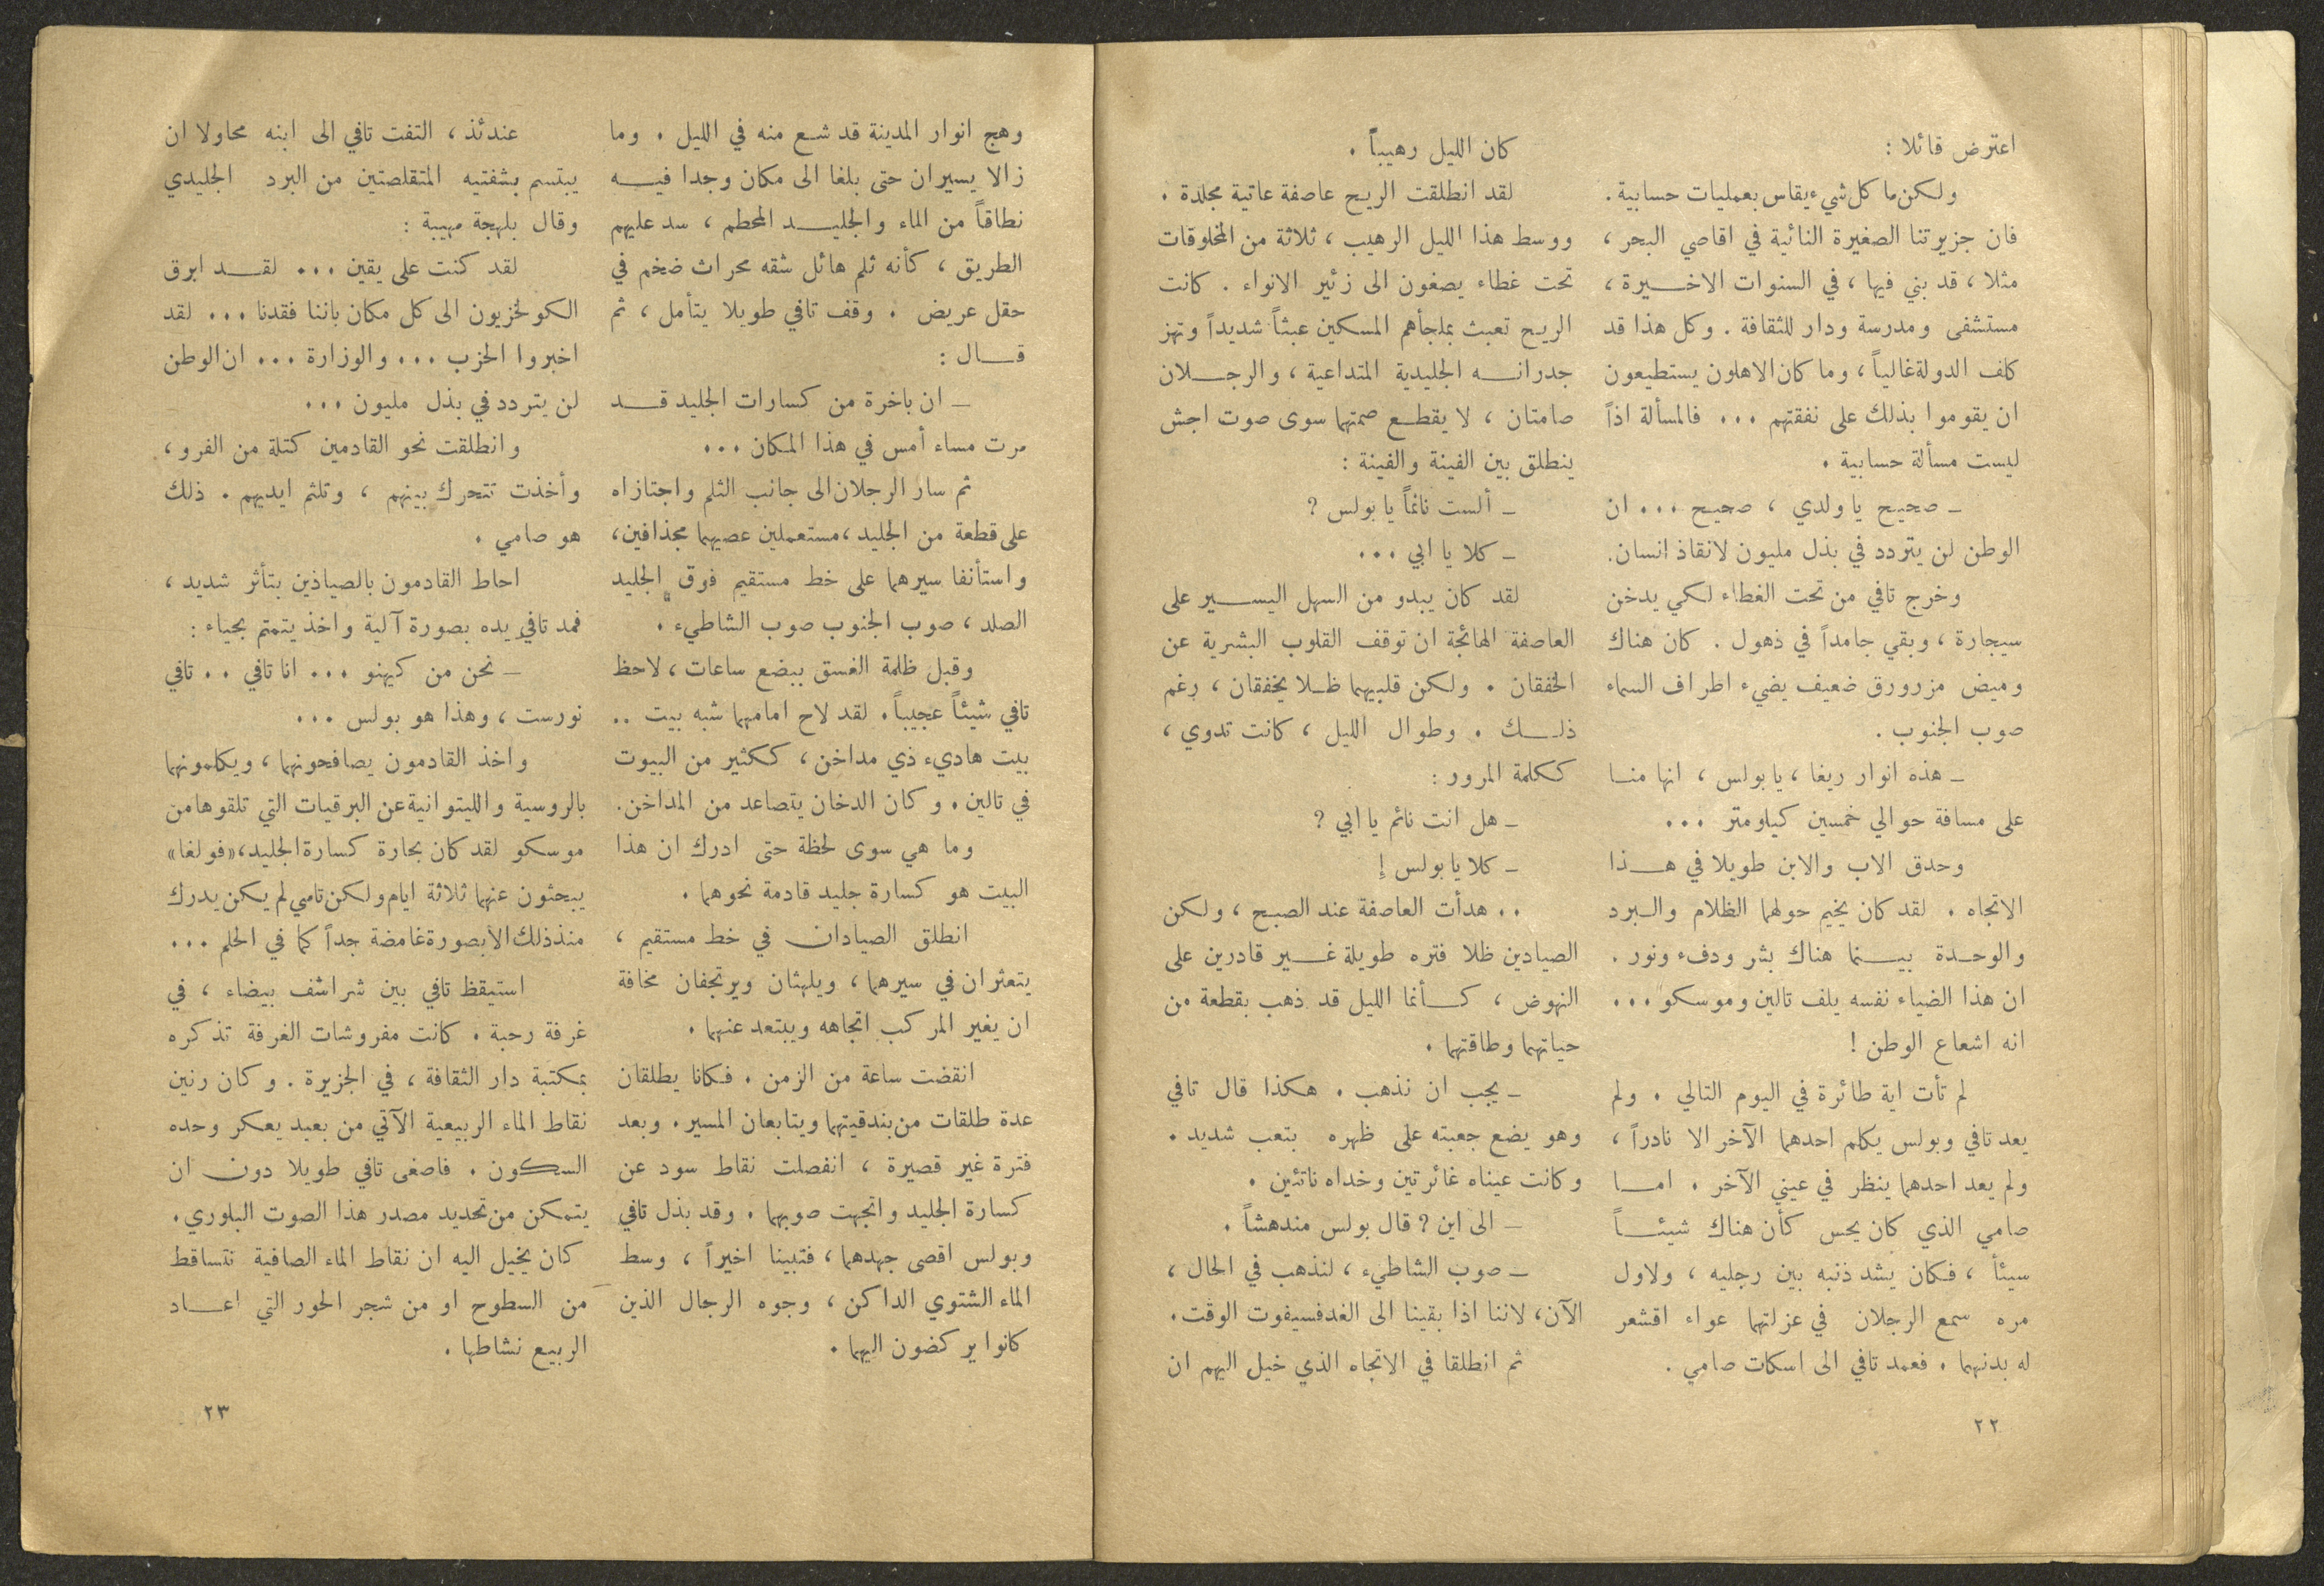 اعترض قائلا :
ولكن ما كل شيء يقاس بعمليات حسابية .
فان جزيرتنا الصغيرة النائية في اقاصي البحر ،
مثلا ، قد بني فيها ، في السنوات الاخيرة ،
مستشفى ومدرسة ودار للثقافة . وكل هذا قد
كلف الدولة غالياً ، وما كان الاهلون يستطيعون
ان يقوموا بذلك على نفقتهم ... فالمسألة اذاً
ليست مسألة حسابية .
ـ صحيح يا ولدي ، صحيح ... ان
الوطن لن يتردد في بذل مليون لانقاذ انسان.
وخرج تافي من تحت الغطاء لكي يدخن
سيجارة ، وبقي جامداً في ذهول . كان هناك
وميض مزرورق ضعيف يضيء اطراف السماء
صوب الجنوب .
ـ هذه انوار ريغا ، يا بولس ، انها منا
على مسافة حوالي خمسين كيلومتر ...
وحدق الاب والابن طويلا في هذا
الاتجاه . لقد كان يخيم حولهما الظلام والبرد
والوحدة بينما هناك بشر ودفء ونور .
ان هذا الضياء نفسه يلف تالين وموسكو ...
انه اشعاع الوطن !
لم تأت اية طائرة في اليوم التالي . ولم
يعد تافي وبولس يكلم احدهما الآخر الا نادراً ،
ولم يعد احدهما ينظر في عيني الآخر . اما
صامي الذي كان يحس كأن هناك شيئاً
سيئاً ، فكان يشد ذنبه بين رجليه ، ولاول
مره سمع الرجلان في عزلتهما عواء اقشعر
له بدنهما . فعمد تافي الى اسكات صامي .
كان الليل رهيباً .
لقد انطلقت الريح عاصفة عاتية مجلدة .
ووسط هذا الليل الرهيب ، ثلاثة من المخلوقات
تحت غطاء يصغون الى زئير الانواء . كانت
الريح تعبث بملجأهم المسكين عبثاً شديداً وتهز
جدرانه الجليدية المتداعية ، والرجلان
صامتان ، لا يقطع صمتهما سوى صوت اجش
ينطلق بين الفينة والفينة :
ـ ألست نائماً يا بولس ؟
ـ كلا يا ابي ...
لقد كان يبدو من السهل اليسير على
العاصفة الهائجة ان توقف القلوب البشرية عن
الخفقان . ولكن قلبيهما ظلا يخفقان ، رغم
ذلك . وطوال الليل ، كانت تدوي ،
ككلمة المرور :
ـ هل انت نائم يا ابي ؟
ـ كلا يا بولس !
.. هدأت العاصفة عند الصبح ، ولكن
الصيادين ظلا فتره طويلة غير قادرين على
النهوض ، كأنما الليل قد ذهب بقطعة من
حياتهما وطاقتهما .
ـ يجب ان نذهب . هكذا قال تافي
وهو يضع جعبته على ظهره بتعب شديد .
وكانت عيناه غائرتين وخداه ناتئين .
ـ الى اين ؟ قال بولس مندهشاً .
ـ صوب الشاطيء ، لنذهب في الحال ،
الآن ، لاننا اذا بقينا الى الغد فسيفوت الوقت .
ثم انطلقا في الاتجاه الذي خيل اليهم ان
٢٢
وهج انوار المدينة قد شع منه في الليل . وما
زالا يسيران حتى بلغا الى مكان وجدا فيه
نطاقاً من الماء والجليد المحطم ، سد عليهم
الطريق ، كأنه ثلم هائل شقه محراث ضخم في
حقل عريض . وقف تافي طويلا يتأمل ، ثم
قال :
ـ ان باخرة من كسارات الجليد قد
مرت مساء أمس في هذا المكان ...
ثم سار الرجلان الى جانب الثلم واجتازاه
على قطعة من الجليد ، مستعملين عصيهما كمجذافين ،
واستأنفا سيرهما على خط مستقيم فوق الجليد
الصلد ، صوب الجنوب صوب الشاطيء .
وقبل ظلمة الغسق ببضع ساعات ، لاحظ
تافي شيئاً عجيباً . لقد لاح امامهما شبه بيت ..
بيت هاديء ذي مداخن ، ككثير من البيوت
في تالين . وكان الدخان يتصاعد من المداخن .
وما هي سوى لحظة حتى ادرك ان هذا
البيت هو كسارة جليد قادمة نحوهما .
انطلق الصيادان في خط مستقيم ،
يتعثران في سيرهما ، ويلهثان ويرتجفان مخافة
ان يغير المركب اتجاهه ويبتعد عنهما .
انقضت ساعة من الزمن . فكانا يطلقان
عدة طلقات من بندقيتهما ويتابعان المسير . وبعد
فترة غير قصيرة ، انفصلت نقاط سود عن
كسارة الجليد واتجهت صوبهما . وقد بذل تافي
وبولس اقصى جهدهما ، فتبينا اخيراً ، وسط
الماء الشتوي الداكن ، وجوه الرجال الذين
كانوا يركضون اليهما .
عندئذ ، التفت تافي الى ابنه محاولا ان
يبتسم بشفتيه المتقلصتين من البرد الجليدي
وقال بلهجة مهيبة :
لقد كنت على يقين ... لقد ابرق
الكولخزيون الى كل مكان باننا فقدنا ... لقد
اخبروا الحزب ... والوزارة ... ان الوطن
لن يتردد في بذل مليون ...
وانطلقت نحو القادمين كتلة من الفرو ،
وأخذت تتحرك بينهم ، وتلثم ايديهم . ذلك
هو صامي .
احاط القادمون بالصياذين بتأثر شديد ،
فمد تافي يده بصورة آلية واخذ يتمتم بحياء :
ـ نحن من كيهنو ... انا تافي .. تافي
نورست ، وهذا هو بولس ...
واخذ القادمون يصافحونهما ، ويكلمونهما
بالروسية والليتوانية عن البرقيات التي تلقوها من
موسكو لقد كان بحارة كسارة الجليد ، «فولغا»
يبحثون عنهما ثلاثة ايام ولكن تامي لم يكن يدرك
منذ ذلك الا بصورة غامضة جداً كما في الحلم ...
استيقظ تافي بين شراشف بيضاء ، في
غرفة رحبة . كانت مفروشات الغرفة تذكره
بمكتبة دار الثقافة ، في الجزيرة . وكان رنين
نقاط الماء الربيعية الآتي من بعيد يعكر وحده
السكون . فاصغى تافي طويلا دون ان
يتمكن من تحديد مصدر هذا الصوت البلوري .
كان يخيل اليه ان نقاط الماء الصافية تتساقط
من السطوح او من شجر الحور التي اعاد
الربيع نشاطها .
٢٣